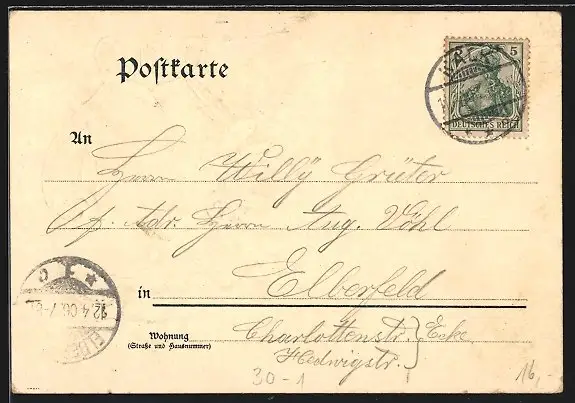 Postkarte
5
DEUTSCHES REICH
An
Herrn Willÿ Grüter
p. Adr. Herrn Aug. Vöhl
in Elberfeld
Wohnung
(Straße und Hausnummer)
Charlottenstr. } Ecke
Hedwigstr.
12.4.06.7-8
30-1
16,-